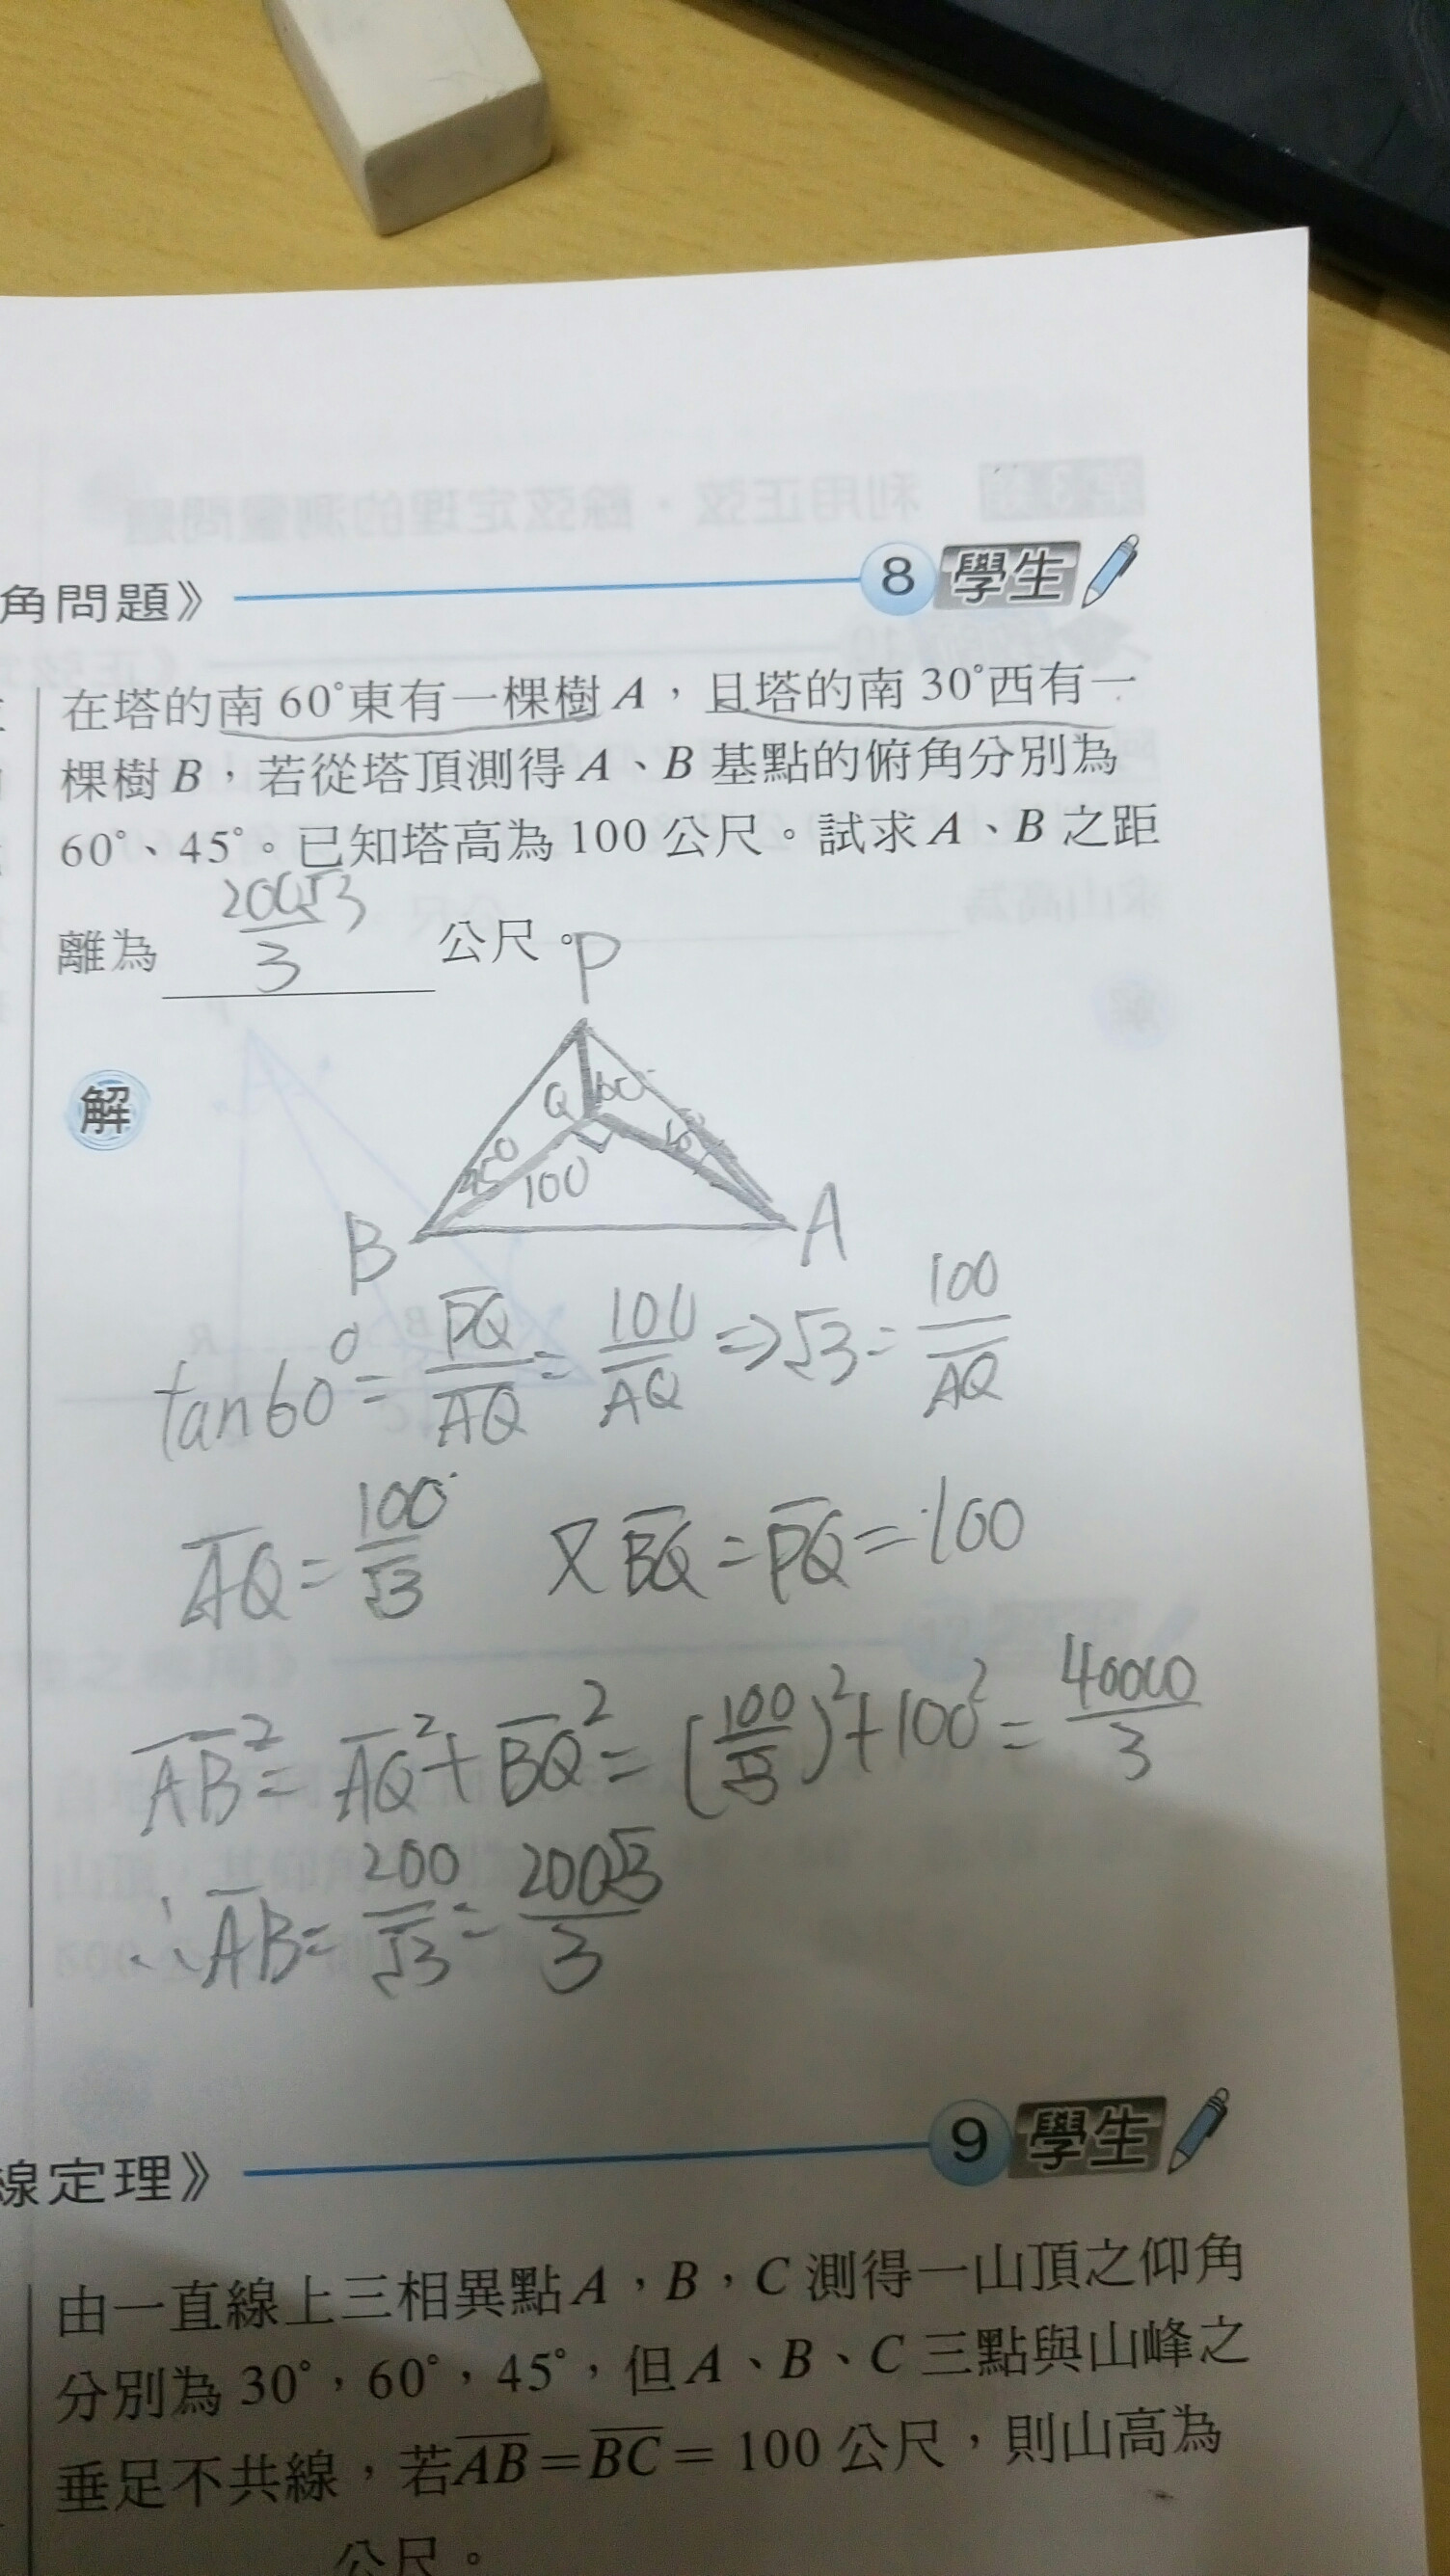 角問題》 8 學生
在塔的南 60°東有一棵樹 A，且塔的南 30°西有一
棵樹 B，若從塔頂測得 A、B 基點的俯角分別為
60°、45°。已知塔高為 100 公尺。試求 A、B 之距
離為 200√3/3 公尺。
P
解
Q 60°
45° 100
B A
tan60° = PQ/AQ = 100/AQ ⇒ √3 = 100/AQ
AQ = 100/√3 又 BQ = PQ = 100
AB² = AQ² + BQ² = (100/√3)² + 100² = 40000/3
∴ AB = 200/√3 = 200√3/3
線定理》 9 學生
由一直線上三相異點 A，B，C 測得一山頂之仰角
分別為 30°，60°，45°，但 A、B、C 三點與山峰之
垂足不共線，若 AB = BC = 100 公尺，則山高為
公尺。